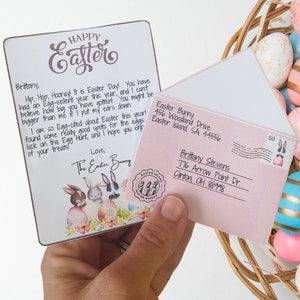 HAPPY
Easter
Brittany,
Hip, Hop, Hooray! It is Easter Day! You have
had an Egg-cellent year this year, and I can't
believe how big you have gotten! You might be
bigger than me if I put my ears down.
I am so Egg-cited about Easter this year! I
found some really good spots for the eggs.
luck on the Egg Hunt, and I hope you enjoy
of your treats!
Love,
The Easter Bunny
Easter Bunny
456 Woodland Drive
Easter Island SA 44556
50
Brittany Stevens
776 Arrow Point Dr.
Canton, OH